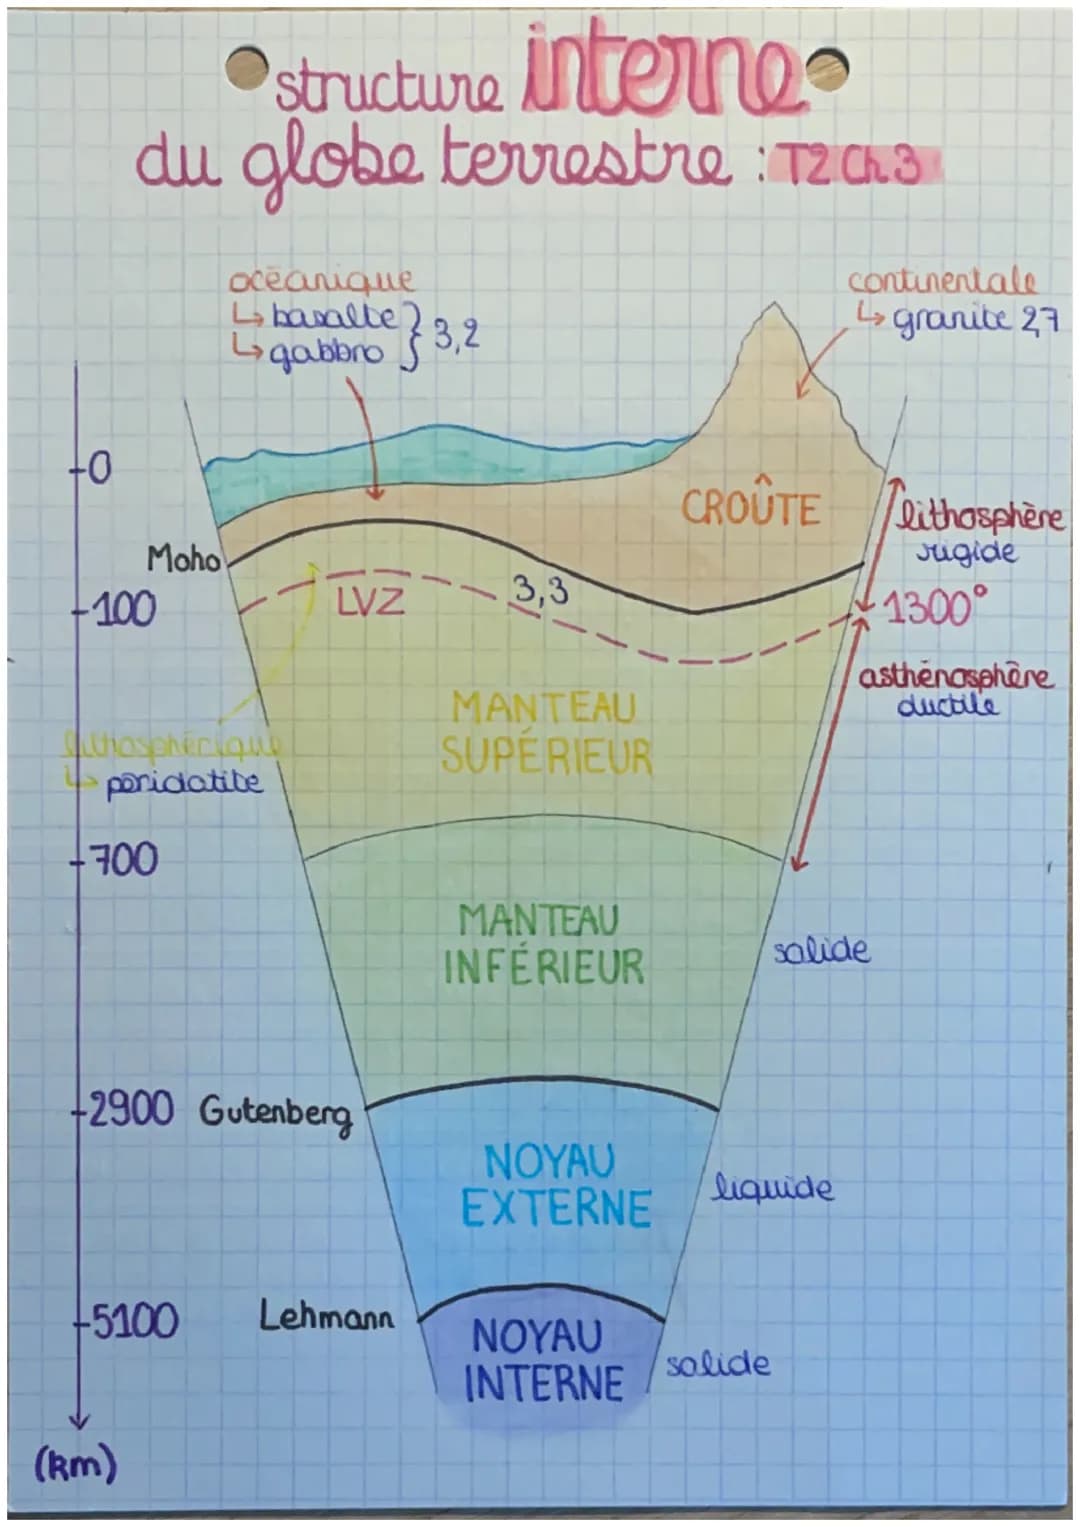 structure interne
du globe terrestre : T2 Ch.3
océanique
↳ basalte } 3,2
↳ gabbro
continentale
↳ granite 2,7
0
CROÛTE
lithosphère
rigide
Moho
3,3
LVZ
100
1300°
asthénosphère
ductile
MANTEAU
SUPÉRIEUR
lithosphérique
↳ péridotite
700
MANTEAU
INFÉRIEUR
solide
2900 Gutenberg
NOYAU
EXTERNE
liquide
5100 Lehmann
NOYAU
INTERNE
solide
(km)